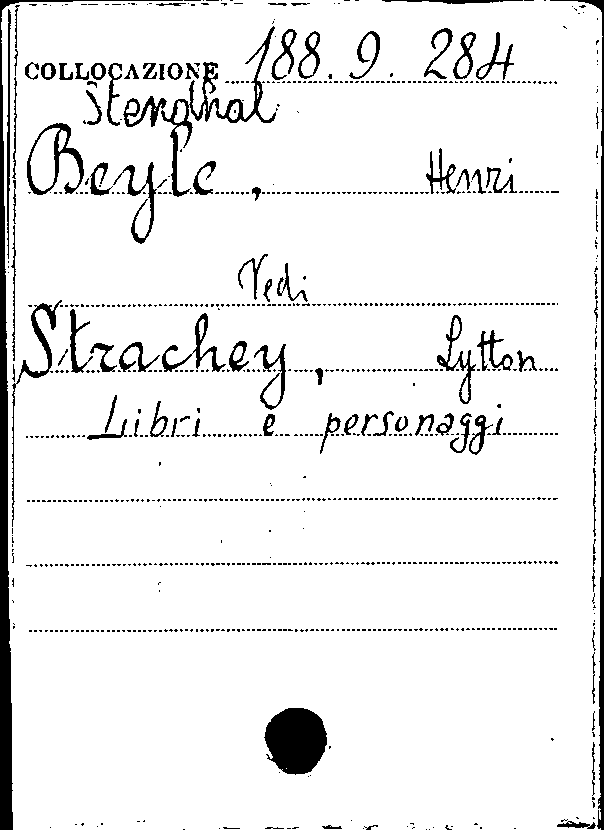 COLLOCAZIONE 188. 9. 284
Stendhal
Beyle, Henri
Vedi
Strachey, Lytton
Libri e personaggi